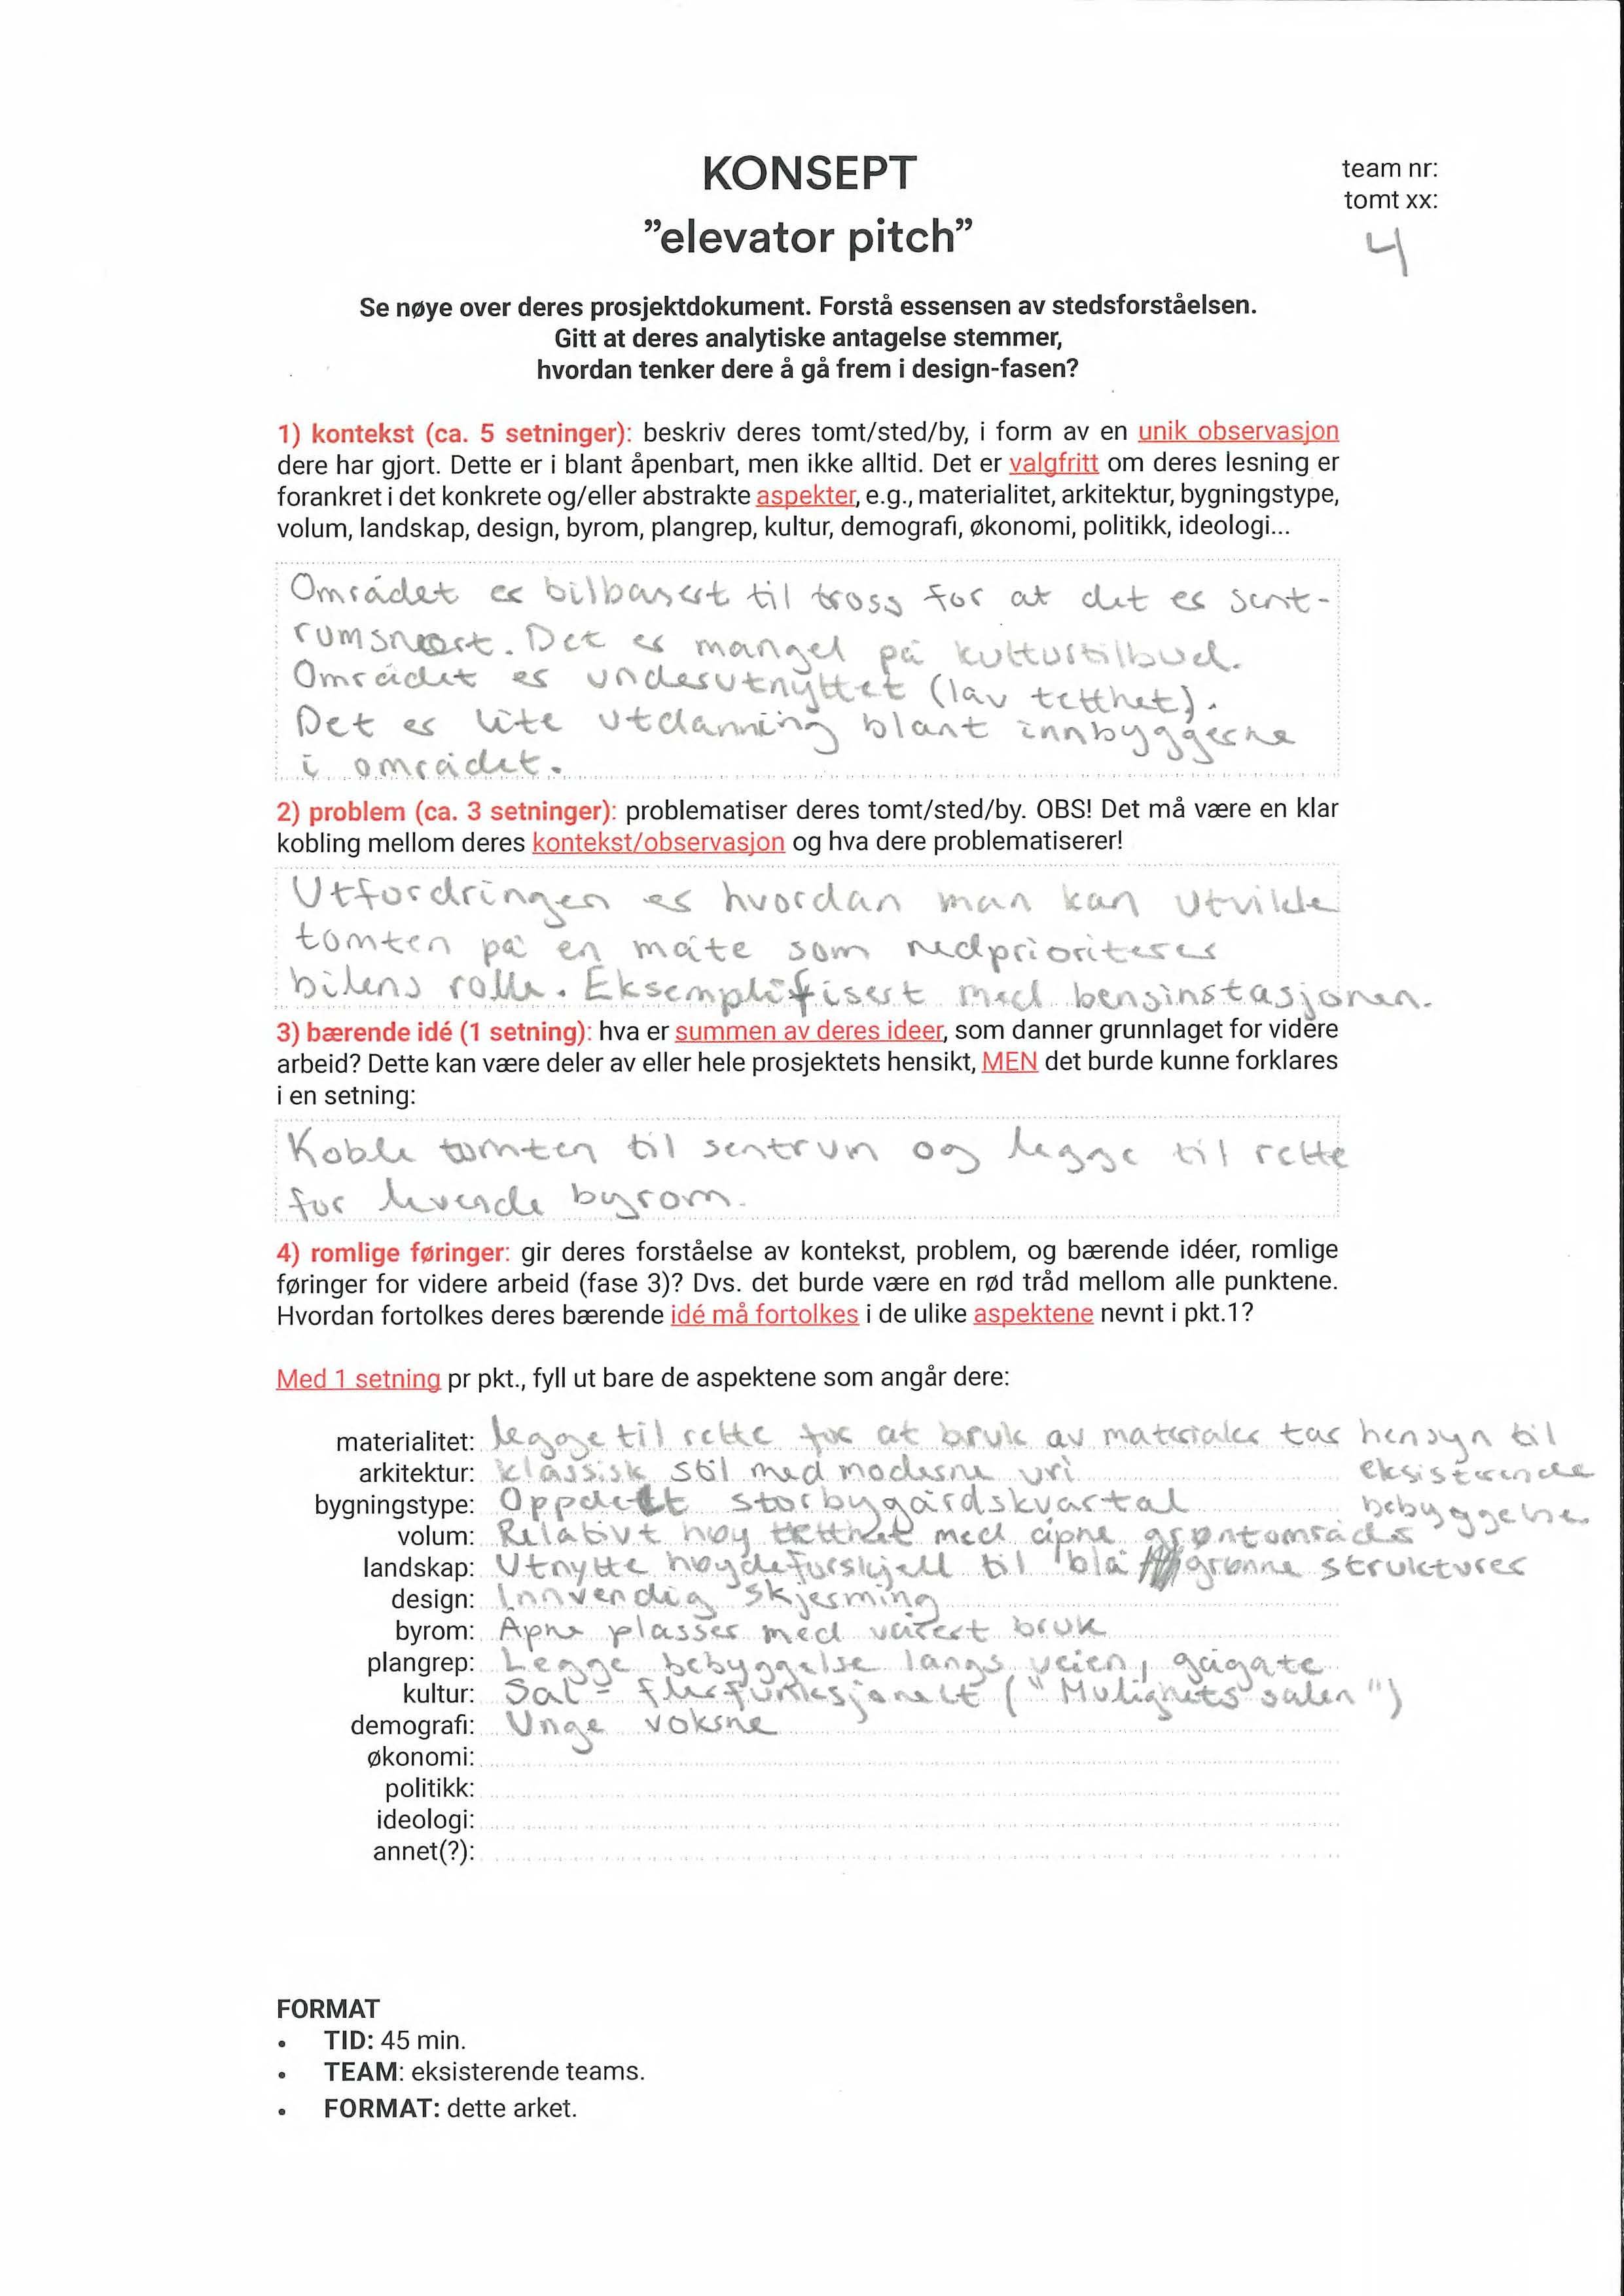 KONSEPT
”elevator pitch”
team nr:
tomt xx:
4
Se nøye over deres prosjektdokument. Forstå essensen av stedsforståelsen.
Gitt at deres analytiske antagelse stemmer,
hvordan tenker dere å gå frem i design-fasen?
1) kontekst (ca. 5 setninger): beskriv deres tomt/sted/by, i form av en unik observasjon
dere har gjort. Dette er i blant åpenbart, men ikke alltid. Det er valgfritt om deres lesning er
forankret i det konkrete og/eller abstrakte aspekter, e.g., materialitet, arkitektur, bygningstype,
volum, landskap, design, byrom, plangrep, kultur, demografi, økonomi, politikk, ideologi...
Området er bilbasert til tross for at det er sent-
rumsnært. Det er mangel på kulturtilbud.
Området er underutnyttet (lav tetthet).
Det er lite utdanning blant innbyggerne
i området.
2) problem (ca. 3 setninger): problematiser deres tomt/sted/by. OBS! Det må være en klar
kobling mellom deres kontekst/observasjon og hva dere problematiserer!
Utfordringen er hvordan man kan utvikle
tomten på en måte som nedprioriterer
bilens rolle. Eksemplifisert med bensinstasjonen.
3) bærende idé (1 setning): hva er summen av deres ideer, som danner grunnlaget for videre
arbeid? Dette kan være deler av eller hele prosjektets hensikt, MEN det burde kunne forklares
i en setning:
Koble tomten til sentrum og legge til rette
for levende byrom.
4) romlige føringer: gir deres forståelse av kontekst, problem, og bærende idéer, romlige
føringer for videre arbeid (fase 3)? Dvs. det burde være en rød tråd mellom alle punktene.
Hvordan fortolkes deres bærende idé må fortolkes i de ulike aspektene nevnt i pkt.1?
Med 1 setning pr pkt., fyll ut bare de aspektene som angår dere:
materialitet: legge til rette for at bruk av materialer tar hensyn til
eksisterende
bebyggelse.
arkitektur: klassisk stil med moderne vri
bygningstype: Oppdelt storbygårdskvartal
volum: Relativt høy tetthet med åpne grøntområder
landskap: Utnytte høydeforskjell til blå grønne strukturer
design: Innvendig skjerming
byrom: Åpne plasser med variert bruk
plangrep: Legge bebyggelse langs veien, gågate
kultur: Sal - flerfunksjonelt ("Mulighets salen")
demografi: Unge voksne
økonomi:
politikk:
ideologi:
annet(?):
FORMAT
• TID: 45 min.
• TEAM: eksisterende teams.
• FORMAT: dette arket.